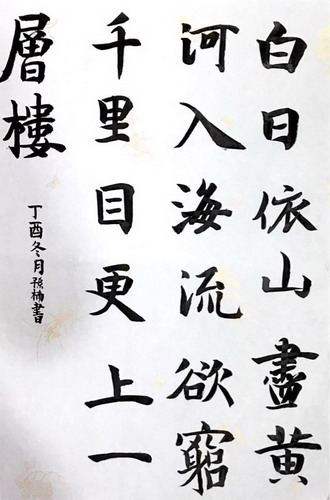 白日依山盡黃
河入海流欲窮
千里目更上一
層樓
丁酉冬月孫楠書